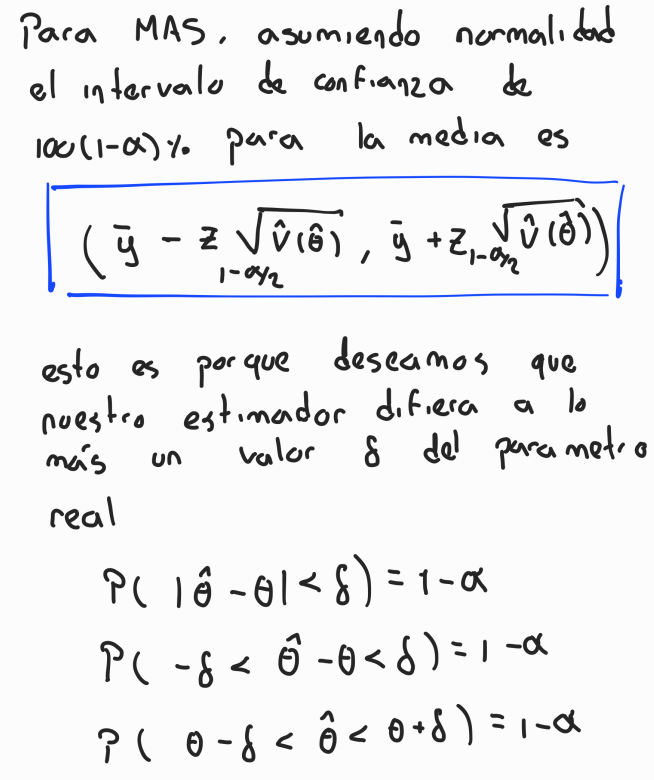 Para MAS, asumiendo normalidad
el intervalo de confianza de
100(1-α)% para la media es
( ȳ - z_{1-α/2} √V̂(θ̂) , ȳ + z_{1-α/2} √V̂(θ̂) )
esto es porque deseamos que
nuestro estimador difiera a lo
más un valor δ del parametro
real
P( |θ̂ - θ| < δ ) = 1-α
P( -δ < θ̂ - θ < δ ) = 1-α
P( θ-δ < θ̂ < θ+δ ) = 1-α